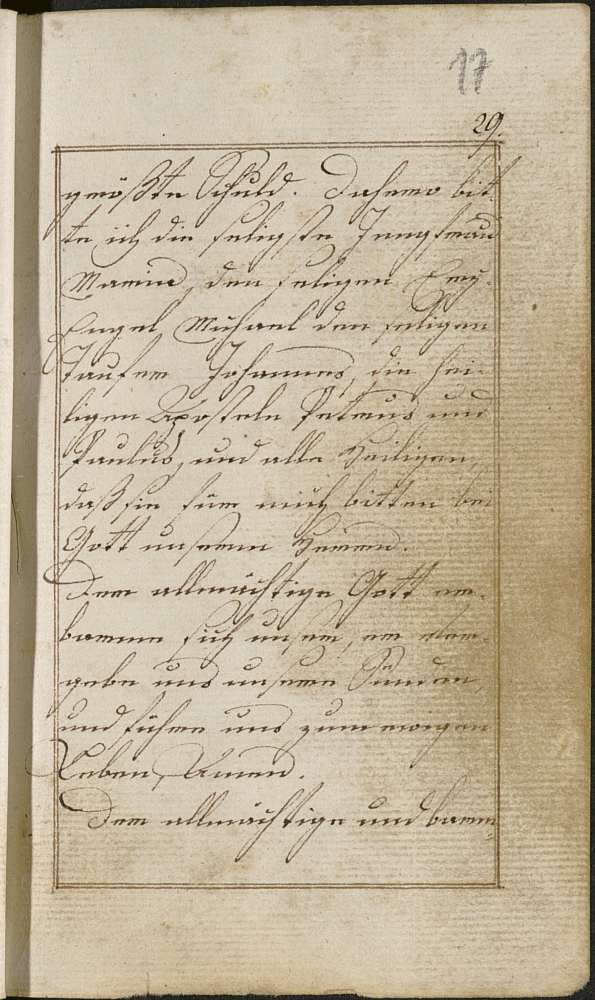 17
29.
größte Schuld. Dahero bit-
te ich die seligste Jungfrau
Maria, den seligen Erz-
Engel Michael den seligen
Taufer Johannes, die hei-
ligen Aposteln Petrus und
Paulus, und alle Heiligen,
daß sie für mich bitten bei
Gott unserm Herrn.
Der allmächtige Gott er-
barme sich unser, er ver-
gebe uns unsere Sünden,
und führe uns zum ewigen
Leben, Amen.
Der allmächtige und barm-